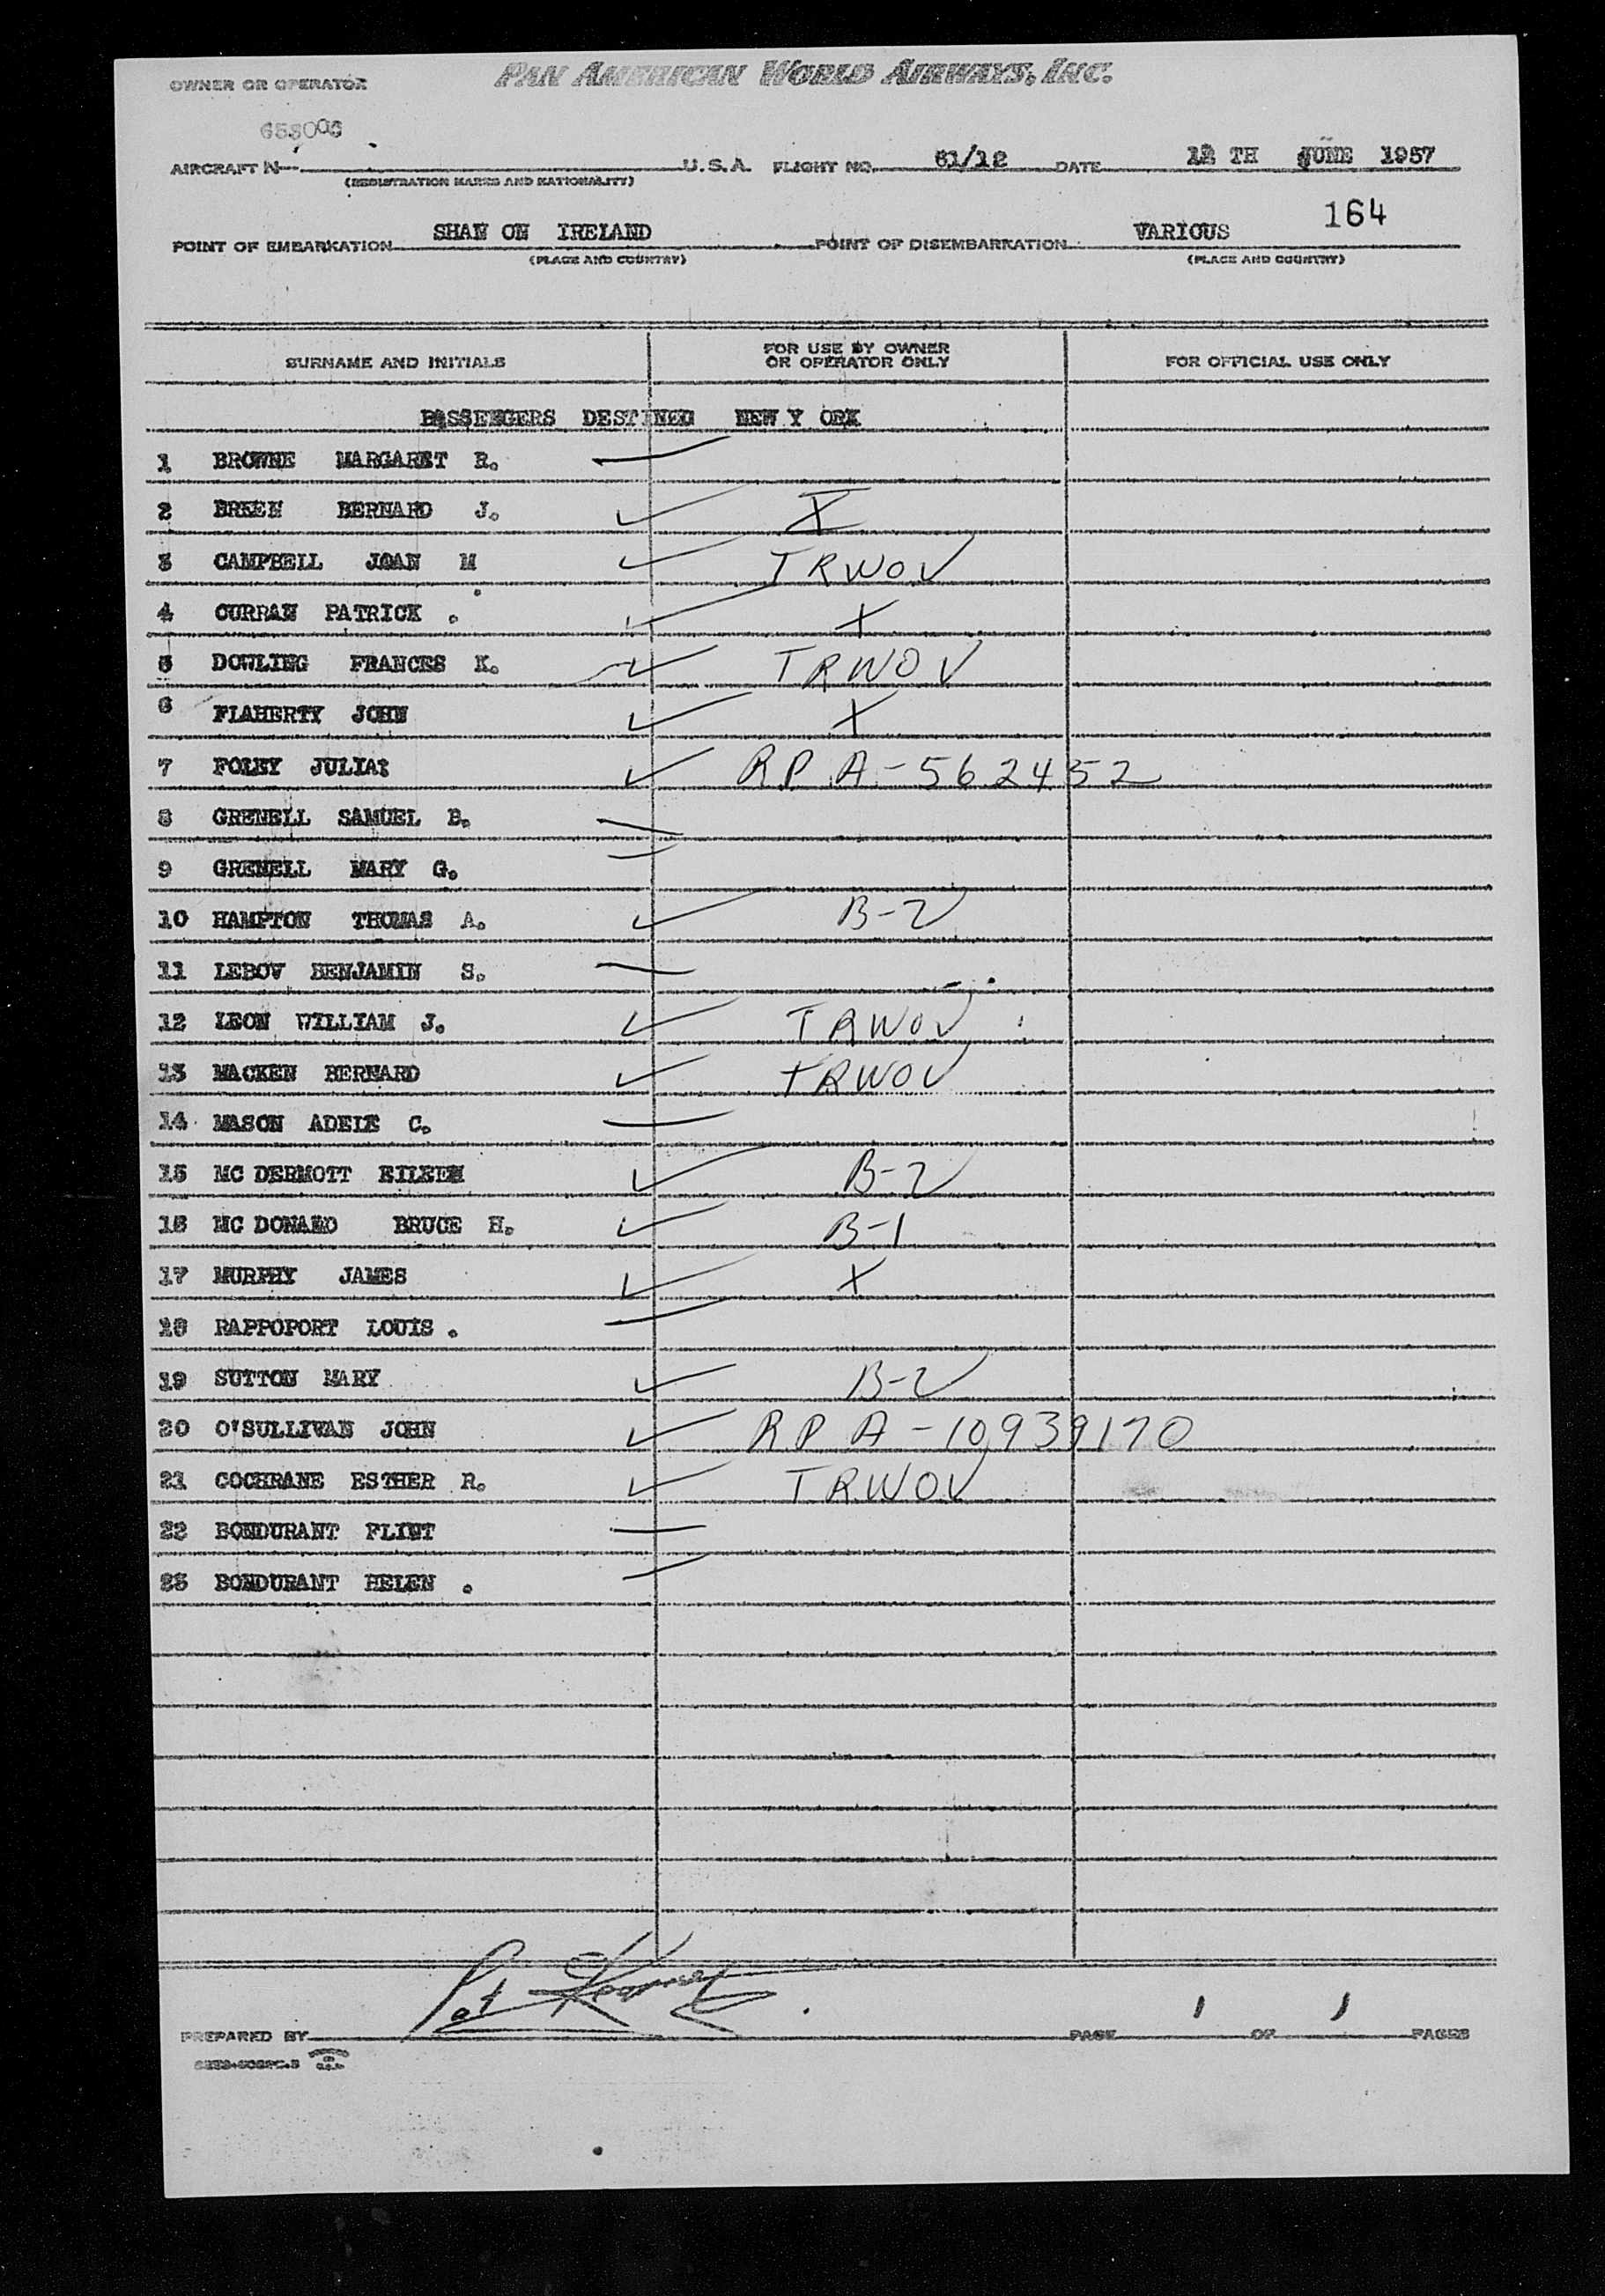 OWNER OR OPERATOR PAN AMERICAN WORLD AIRWAYS, INC.
AIRCRAFT N U.S.A. FLIGHT NO. 61/12 DATE 12 TH JUNE 1957
(REGISTRATION MARKS AND NATIONALITY)
164
POINT OF EMBARKATION SHAN ON IRELAND POINT OF DISEMBARKATION VARIOUS
(PLACE AND COUNTRY) (PLACE AND COUNTRY)
SURNAME AND INITIALS FOR USE BY OWNER OR OPERATOR ONLY FOR OFFICIAL USE ONLY
PASSENGERS DESTINED NEW Y ORK
1 BROWNE MARGARET R.
2 BREEN BERNARD J. X
3 CAMPBELL JOAN M TRWOV
4 CURRAN PATRICK . X
5 DOWLING FRANCES K. TRWOV
6 FLAHERTY JOHN X
7 FOLEY JULIA RP A-562452
8 GRENELL SAMUEL B.
9 GRENELL MARY G.
10 HAMPTON THOMAS A. B-2
11 LEBOV BENJAMIN S.
12 LEON WILLIAM J. TRWOV
13 MACKEN BERNARD TRWOV
14 MASON ADELE C.
15 MC DERMOTT EILEEN B-2
16 MC DONALD BRUCE H. B-1
17 MURPHY JAMES X
18 RAPPOPORT LOUIS .
19 SUTTON MARY B-2
20 O'SULLIVAN JOHN RP A-10939170
21 COCHRANE ESTHER R. TRWOV
22 BONDURANT FLINT
23 BONDURANT HELEN .
PREPARED BY Pat PAGE 1 OF 1 PAGES